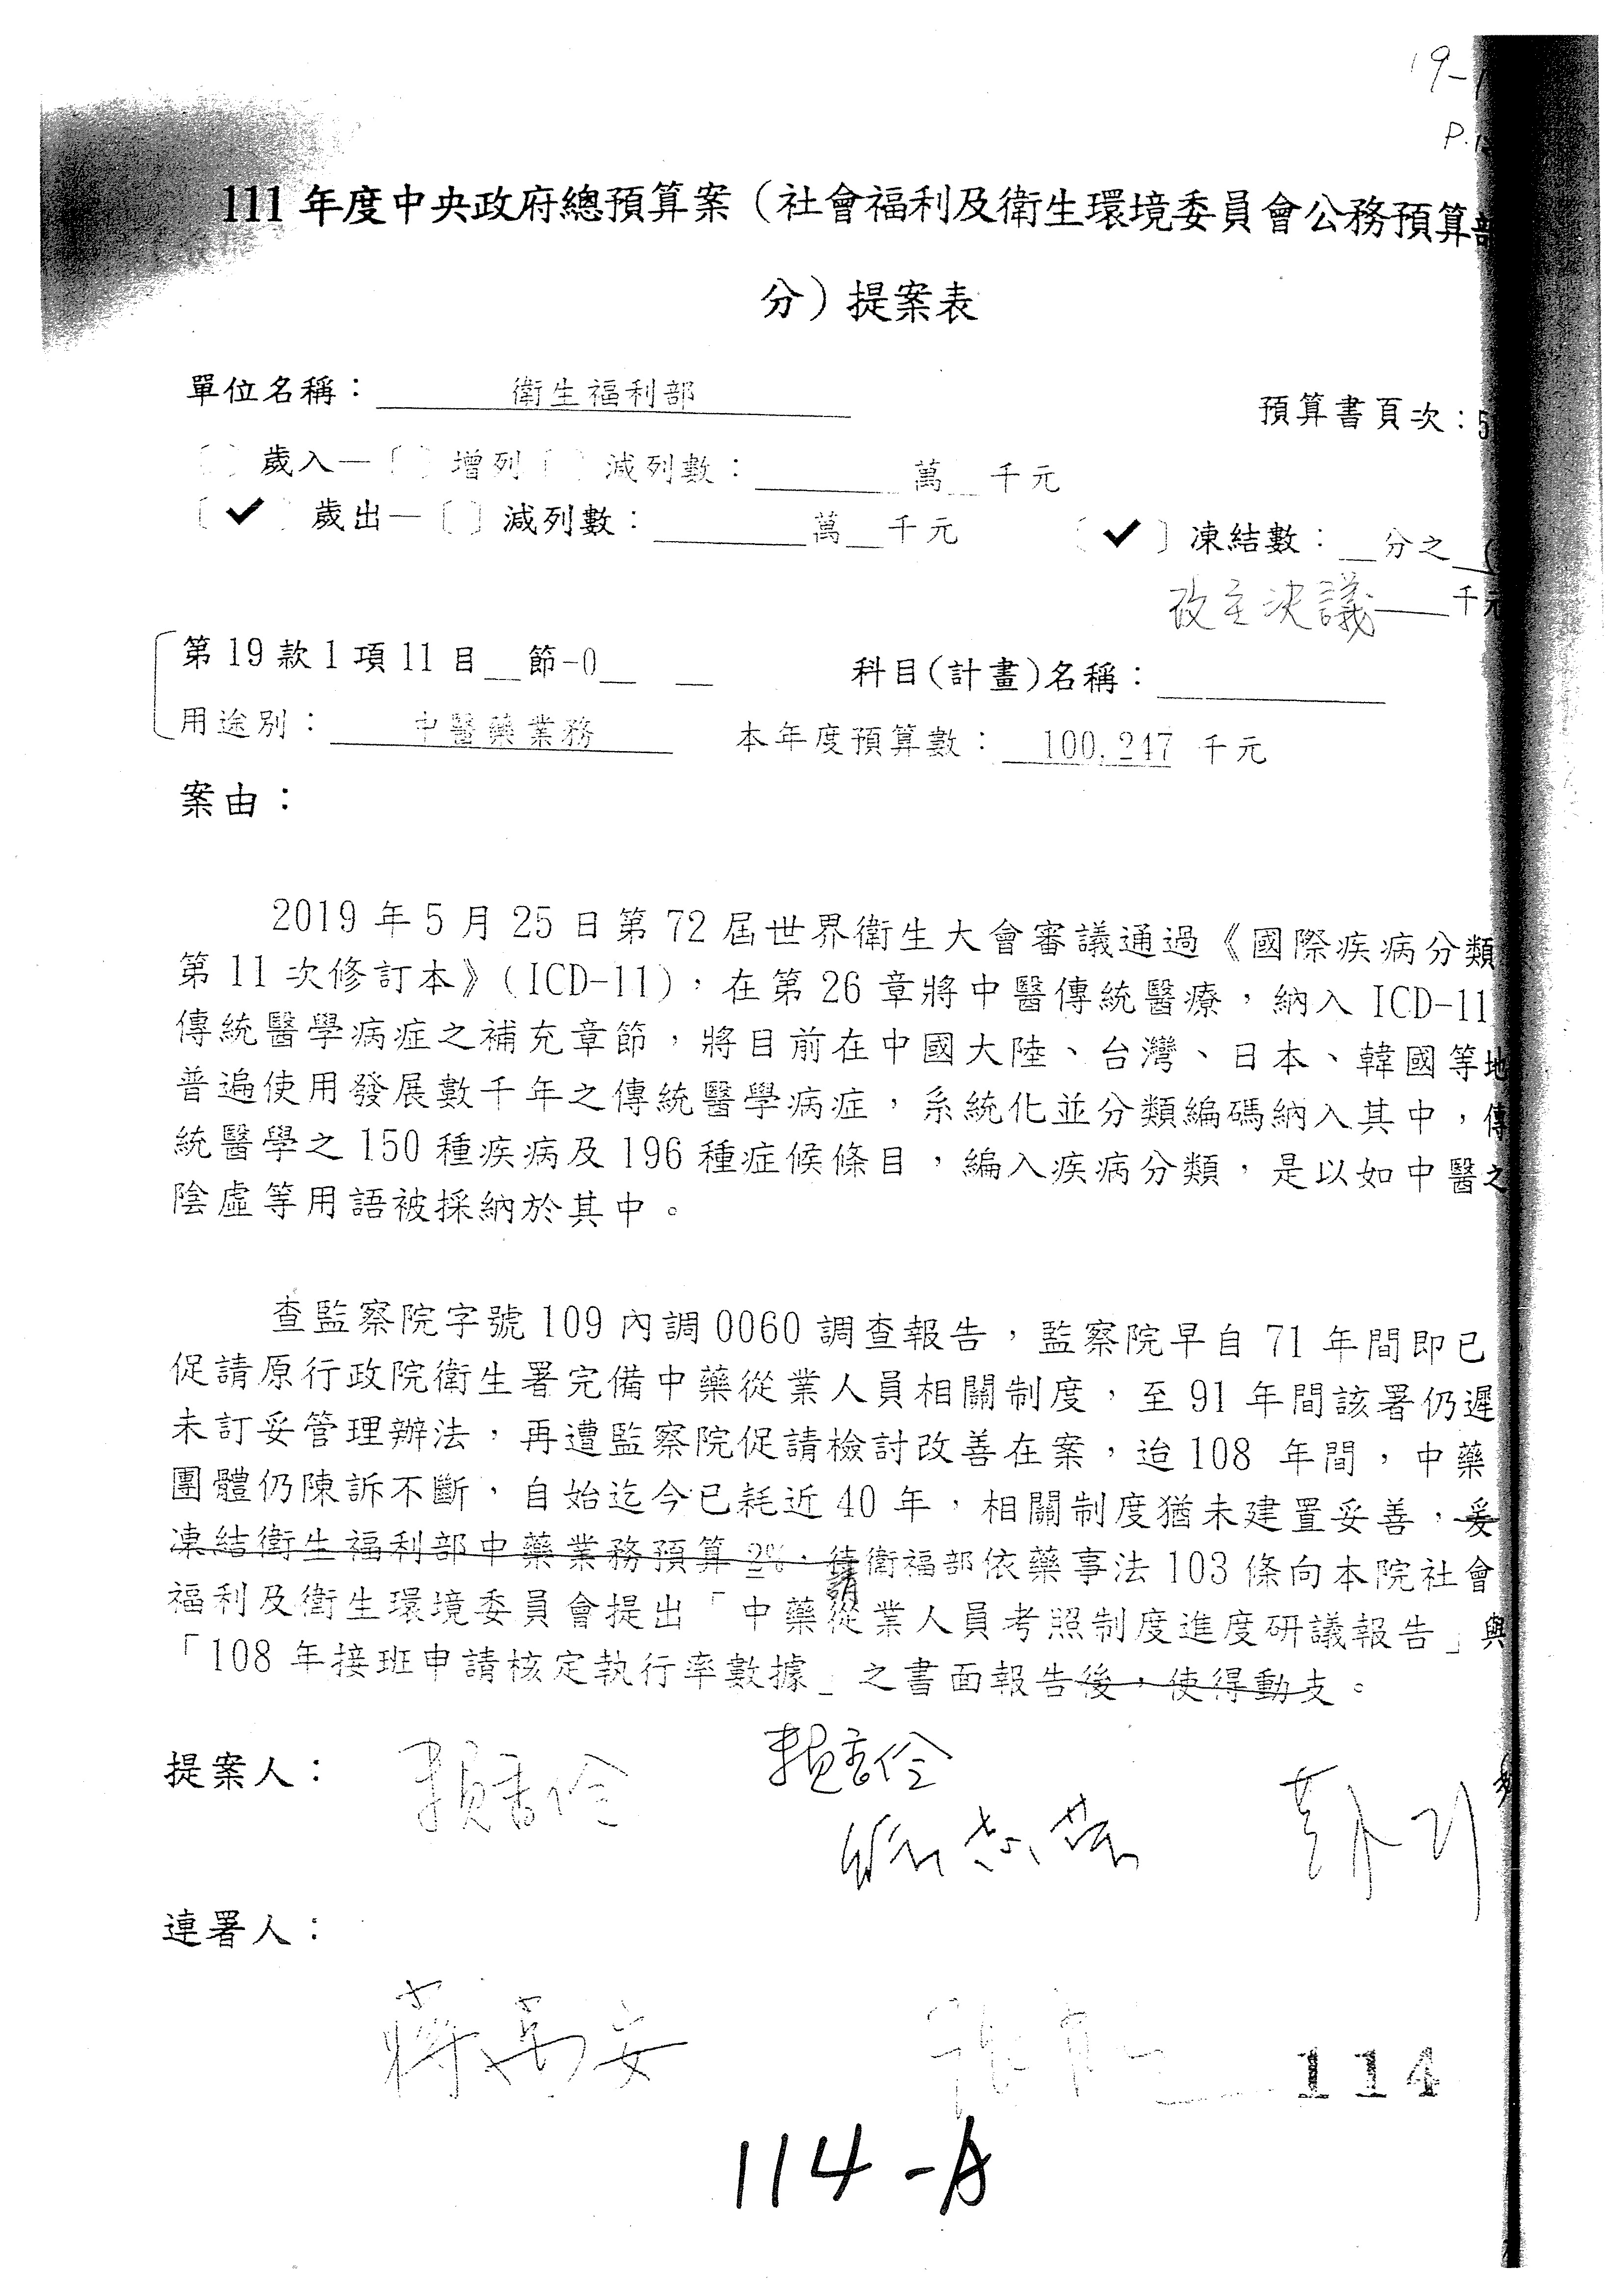 19-
P.1
111 年度中央政府總預算案（社會福利及衛生環境委員會公務預算部
分）提案表
單位名稱：衛生福利部
預算書頁次：5
〔 〕歲入—〔 〕增列〔 〕減列數：______萬__千元
〔✓〕歲出—〔 〕減列數：______萬__千元 〔✓〕凍結數：__分之__
改主決議 千元
第 19 款 1 項 11 目__節-0__ __ 科目(計畫)名稱：______
用途別：中醫藥業務 本年度預算數：100,247 千元
案由：
2019 年 5 月 25 日第 72 屆世界衛生大會審議通過《國際疾病分類
第 11 次修訂本》(ICD-11)，在第 26 章將中醫傳統醫療，納入 ICD-11
傳統醫學病症之補充章節，將目前在中國大陸、台灣、日本、韓國等地
普遍使用發展數千年之傳統醫學病症，系統化並分類編碼納入其中，傳
統醫學之 150 種疾病及 196 種症候條目，編入疾病分類，是以如中醫之
陰虛等用語被採納於其中。
查監察院字號 109 內調 0060 調查報告，監察院早自 71 年間即已
促請原行政院衛生署完備中藥從業人員相關制度，至 91 年間該署仍遲
未訂妥管理辦法，再遭監察院促請檢討改善在案，迨 108 年間，中藥
團體仍陳訴不斷，自始迄今已耗近 40 年，相關制度猶未建置妥善，爰
凍結衛生福利部中藥業務預算 2%，待衛福部依藥事法 103 條向本院社會
請
福利及衛生環境委員會提出「中藥從業人員考照制度進度研議報告」與
「108 年接班申請核定執行率數據」之書面報告後，使得動支。
提案人：賴香伶 賴香伶
連署人：
蔣萬安
114
114-A